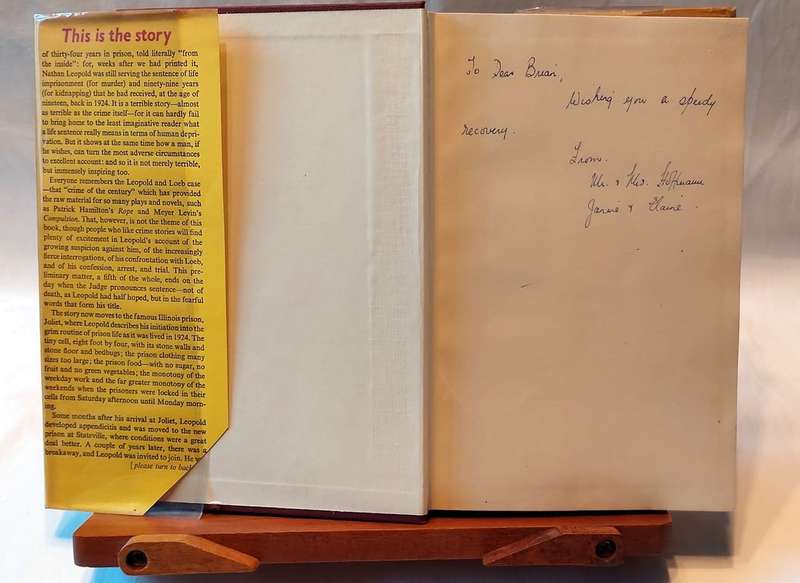 This is the story
of thirty-four years in prison, told literally "from
the inside": for, weeks after we had printed it,
Nathan Leopold was still serving the sentence of life
imprisonment (for murder) and ninety-nine years
(for kidnapping) that he had received, at the age of
nineteen, back in 1924. It is a terrible story—almost
as terrible as the crime itself—for it can hardly fail
to bring home to the least imaginative reader what
a life sentence really means in terms of human depri-
vation. But it shows at the same time how a man, if
he wishes, can turn the most adverse circumstances
to excellent account: and so it is not merely terrible,
but immensely inspiring too.
Everyone remembers the Leopold and Loeb case
—that "crime of the century" which has provided
the raw material for so many plays and novels, such
as Patrick Hamilton's Rope and Meyer Levin's
Compulsion. That, however, is not the theme of this
book, though people who like crime stories will find
plenty of excitement in Leopold's account of the
growing suspicion against him, of the increasingly
fierce interrogations, of his confrontation with Loeb,
and of his confession, arrest, and trial. This pre-
liminary matter, a fifth of the whole, ends on the
day when the Judge pronounces sentence—not of
death, as Leopold had half hoped, but in the fearful
words that form his title.
The story now moves to the famous Illinois prison,
Joliet, where Leopold describes his initiation into the
grim routine of prison life as it was lived in 1924. The
tiny cell, eight foot by four, with its stone walls and
stone floor and bedbugs; the prison clothing many
sizes too large; the prison food—with no sugar, no
fruit and no green vegetables; the monotony of the
weekday work and the far greater monotony of the
weekends when the prisoners were locked in their
cells from Saturday afternoon until Monday morn-
ing.
Some months after his arrival at Joliet, Leopold
developed appendicitis and was moved to the new
prison at Stateville, where conditions were a great
deal better. A couple of years later, there was a
breakaway, and Leopold was invited to join. He
[please turn to back
To Dear Brian,
Wishing you a speedy
recovery.
From.
Mr. & Mrs. Hoffmann
& Elaine.